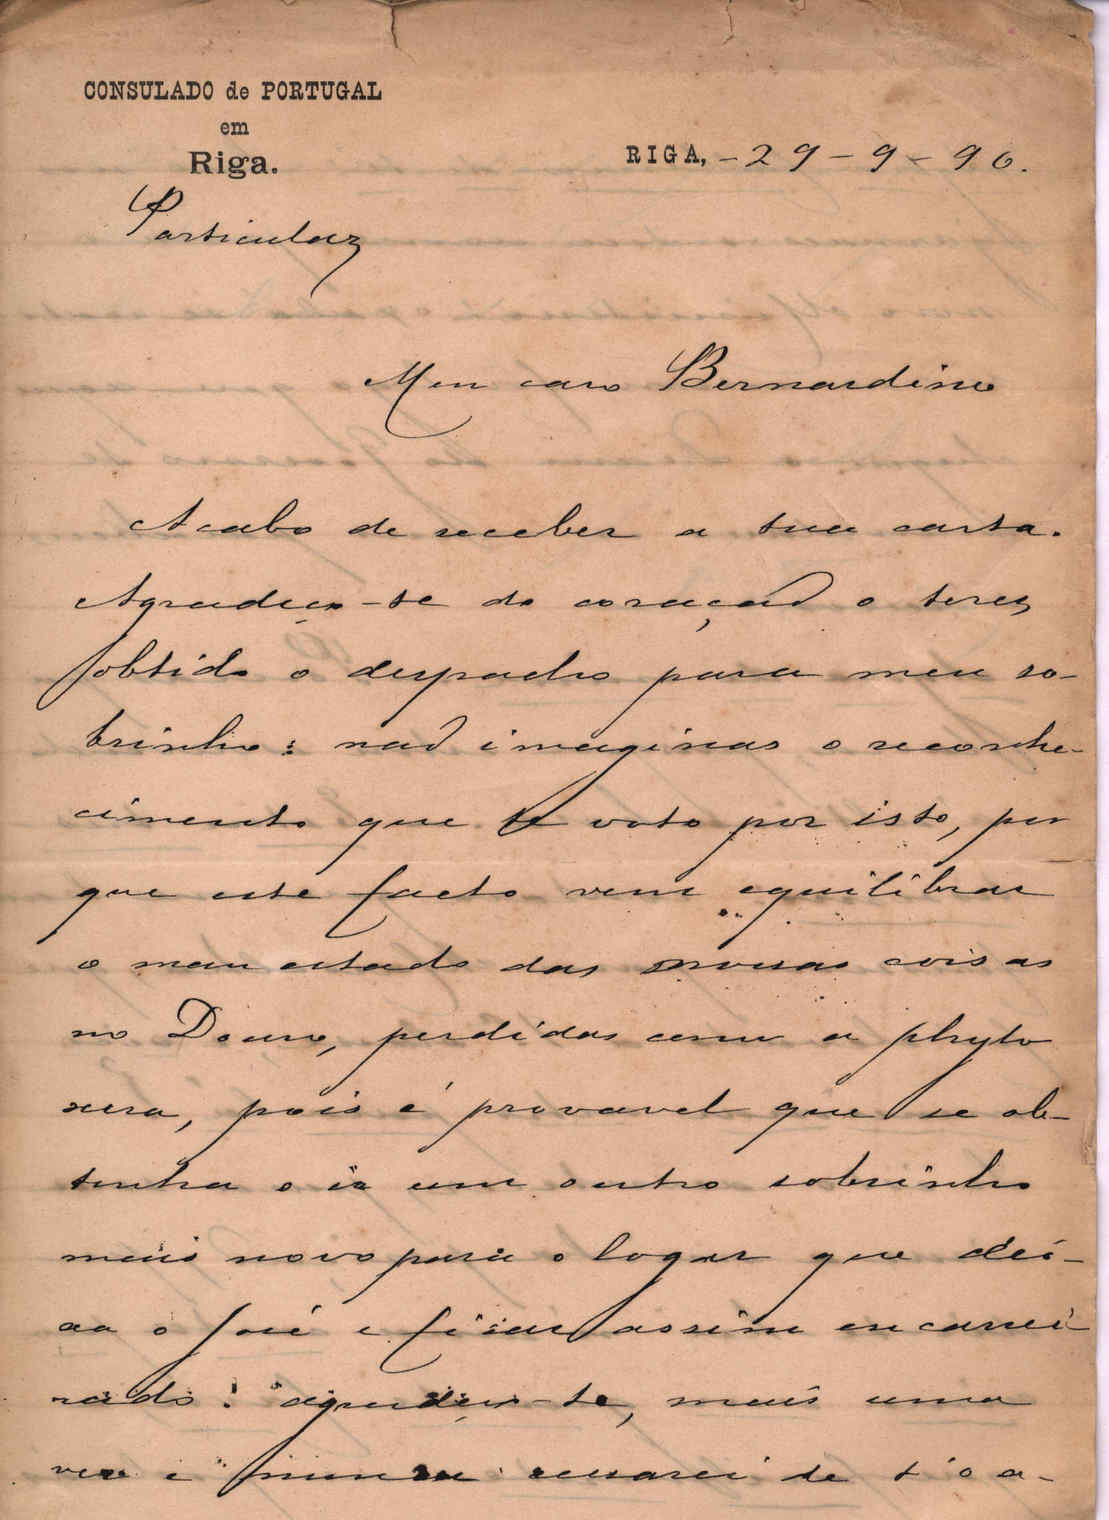 CONSULADO de PORTUGAL
em
Riga.
RIGA, - 29 - 9 - 90.
Particular
Meu caro Bernardino
Acabo de receber a tua carta.
Agradeço-te do coração o teres
obtido o despacho para meu so-
brinho: não imaginas o reconhe-
cimento que te voto por isto, por
que este facto vem equilibrar
o mau estado das nossas coisas
no Douro, perdidas com a phyto
xera, pois é provavel que se ob-
tenha ir um outro sobrinho
mais novo para o logar que dei-
xa o José e ficar assim encarrei
rado: agradeço-te, mais uma
vez e nunca cessarei de t'o a-